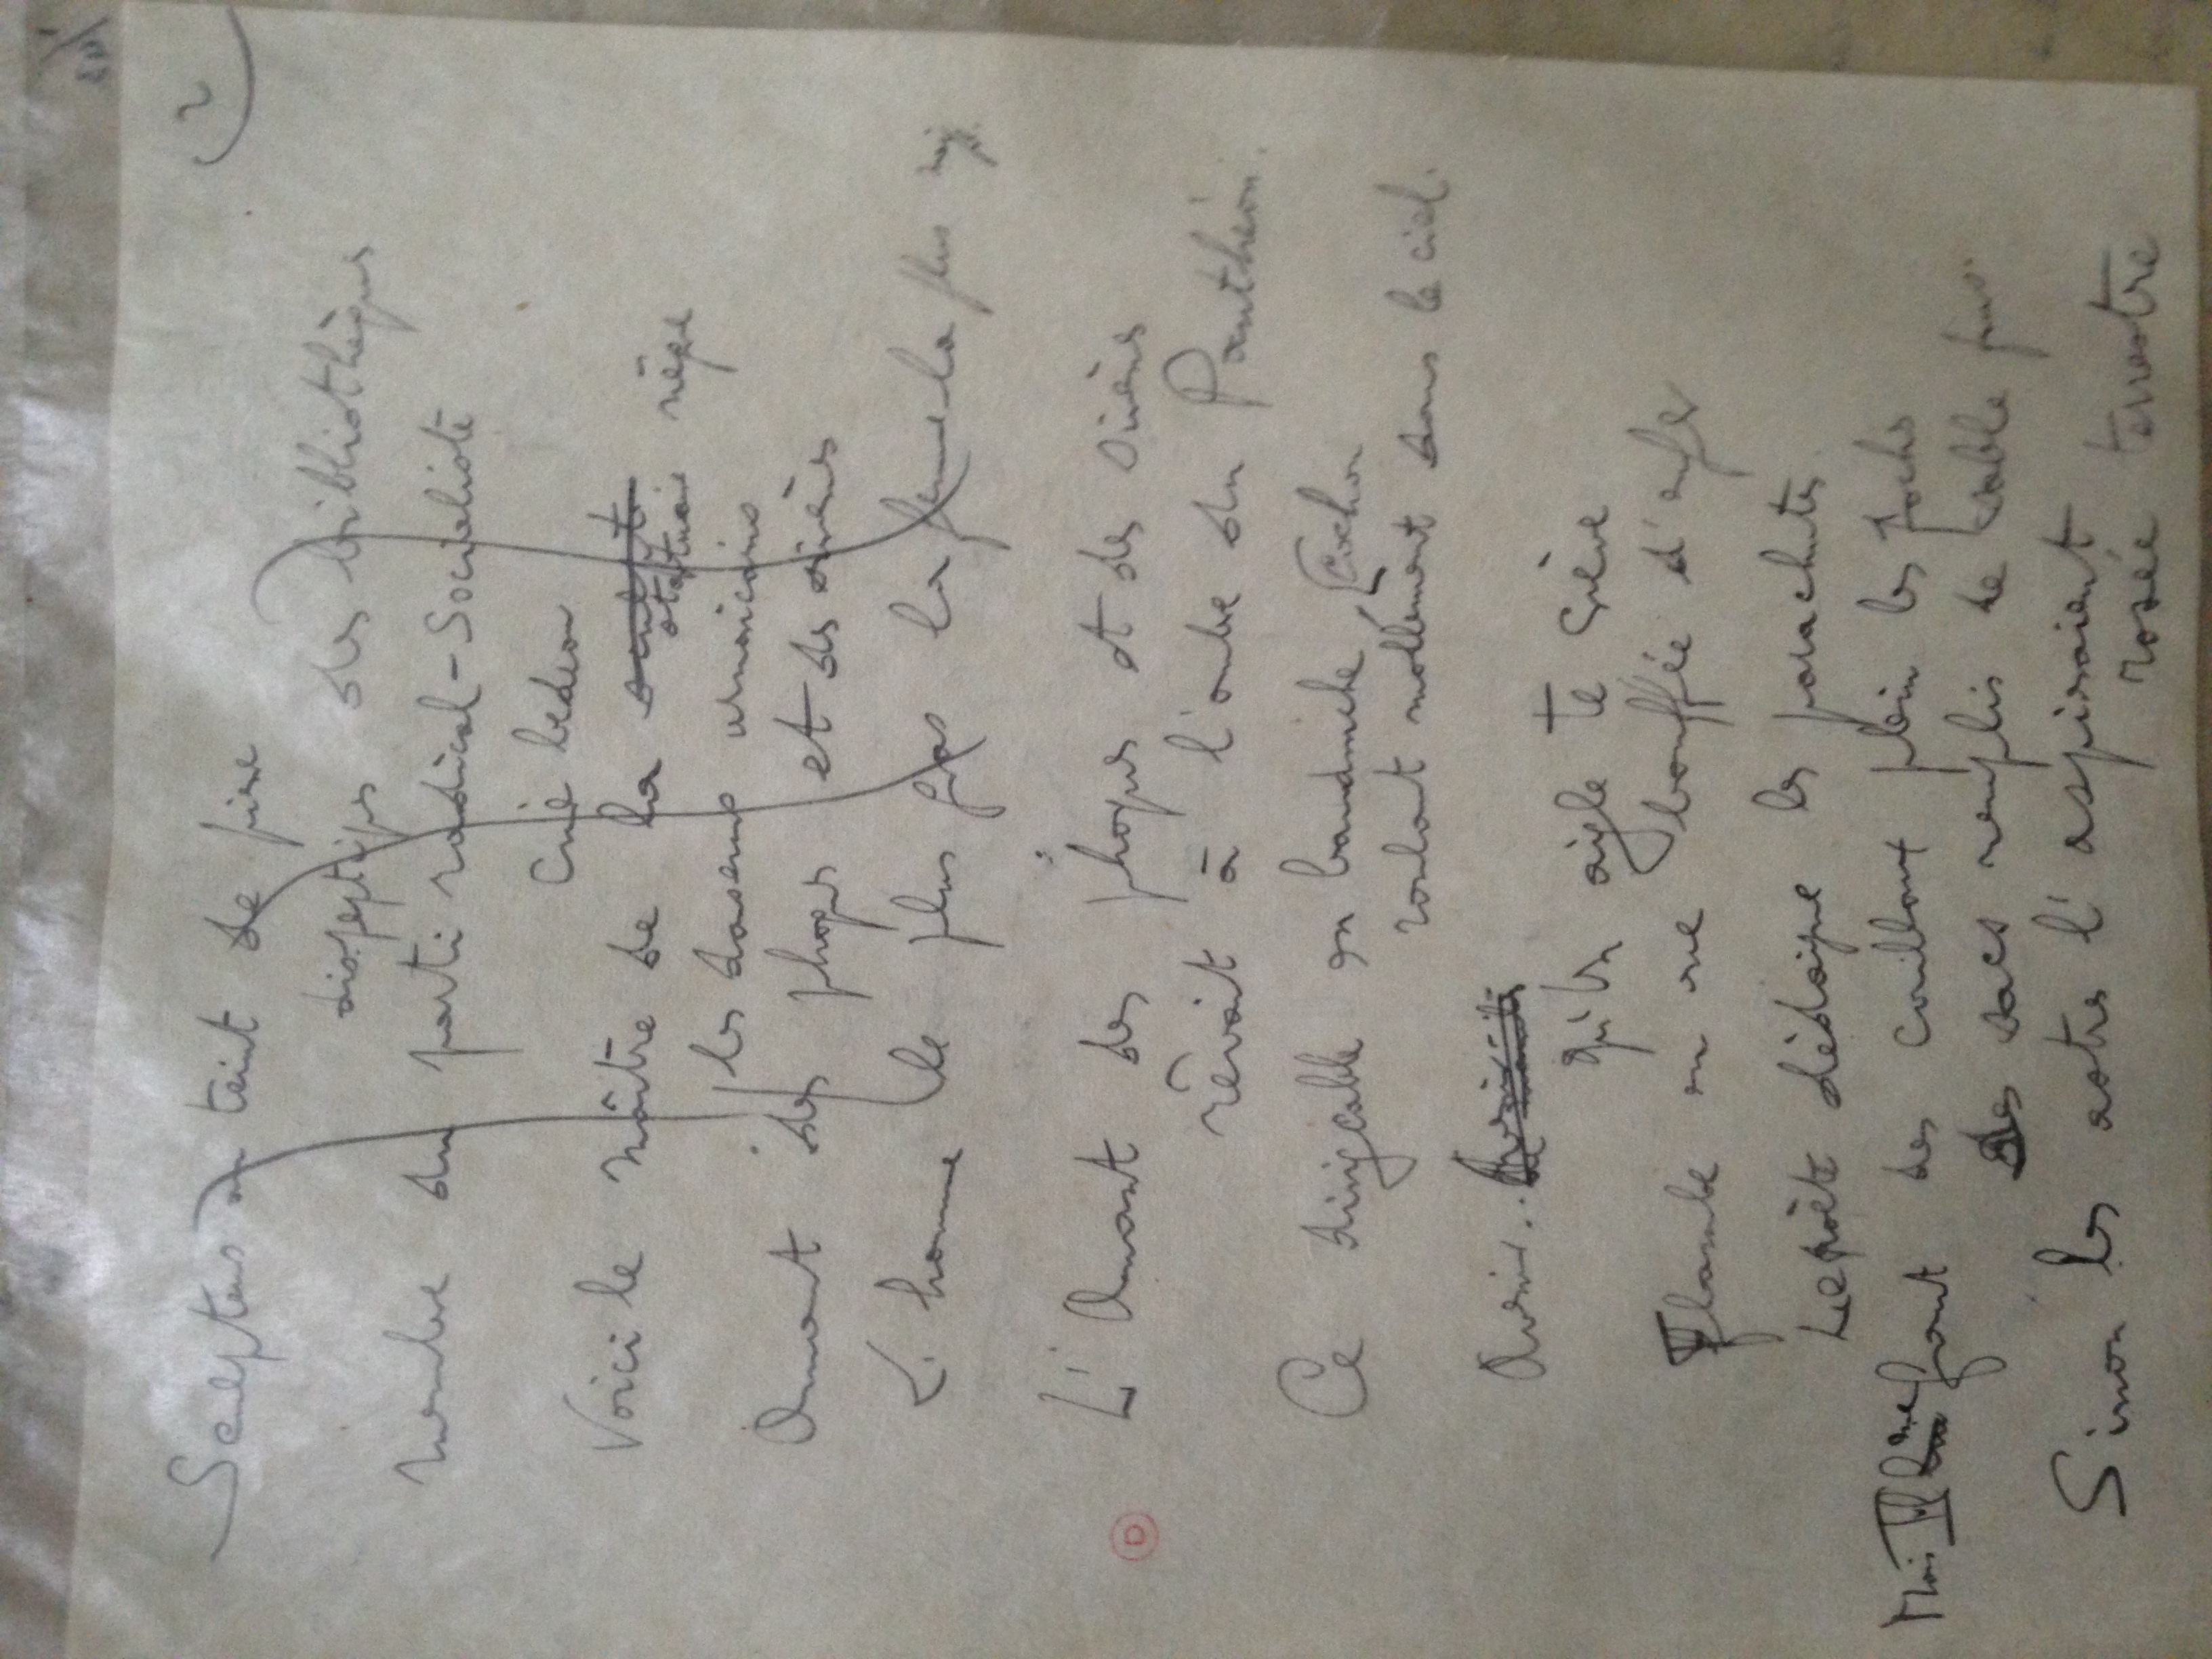 2
Sculpteurs au teint de pierre
dispeptiques des bibliothèques
membre du parti radical-Socialiste
Curé bedeau
Voici le Maître de la sculpt statuaire nègre
les danseurs américains
Amant des phoques et des sirènes
L'homme le plus gras la femme la plus
L'Amant des phoques et des sirènes
rêvait à l'ombre du Panthéon.
Ce dirigeable en baudruche, Cochon
roulant mollement dans le ciel.
Avenir..
Qu'Un aigle te crève
Flambe en une bouffée d'enfer
Le poète dédaigne les parachutes
Mais Il me faut des cailloux plein les poches
des sacs remplis de sable fin
Sinon les astres l'aspireraient
rosée terrestre